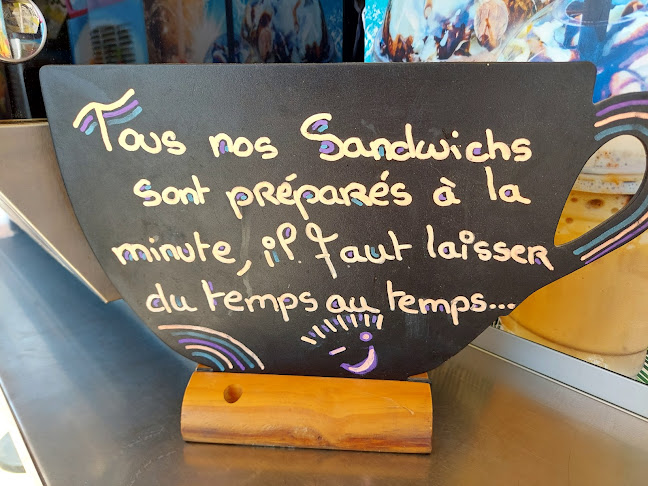 Tous nos Sandwichs
sont préparés à la
minute, il faut laisser
du temps au temps...